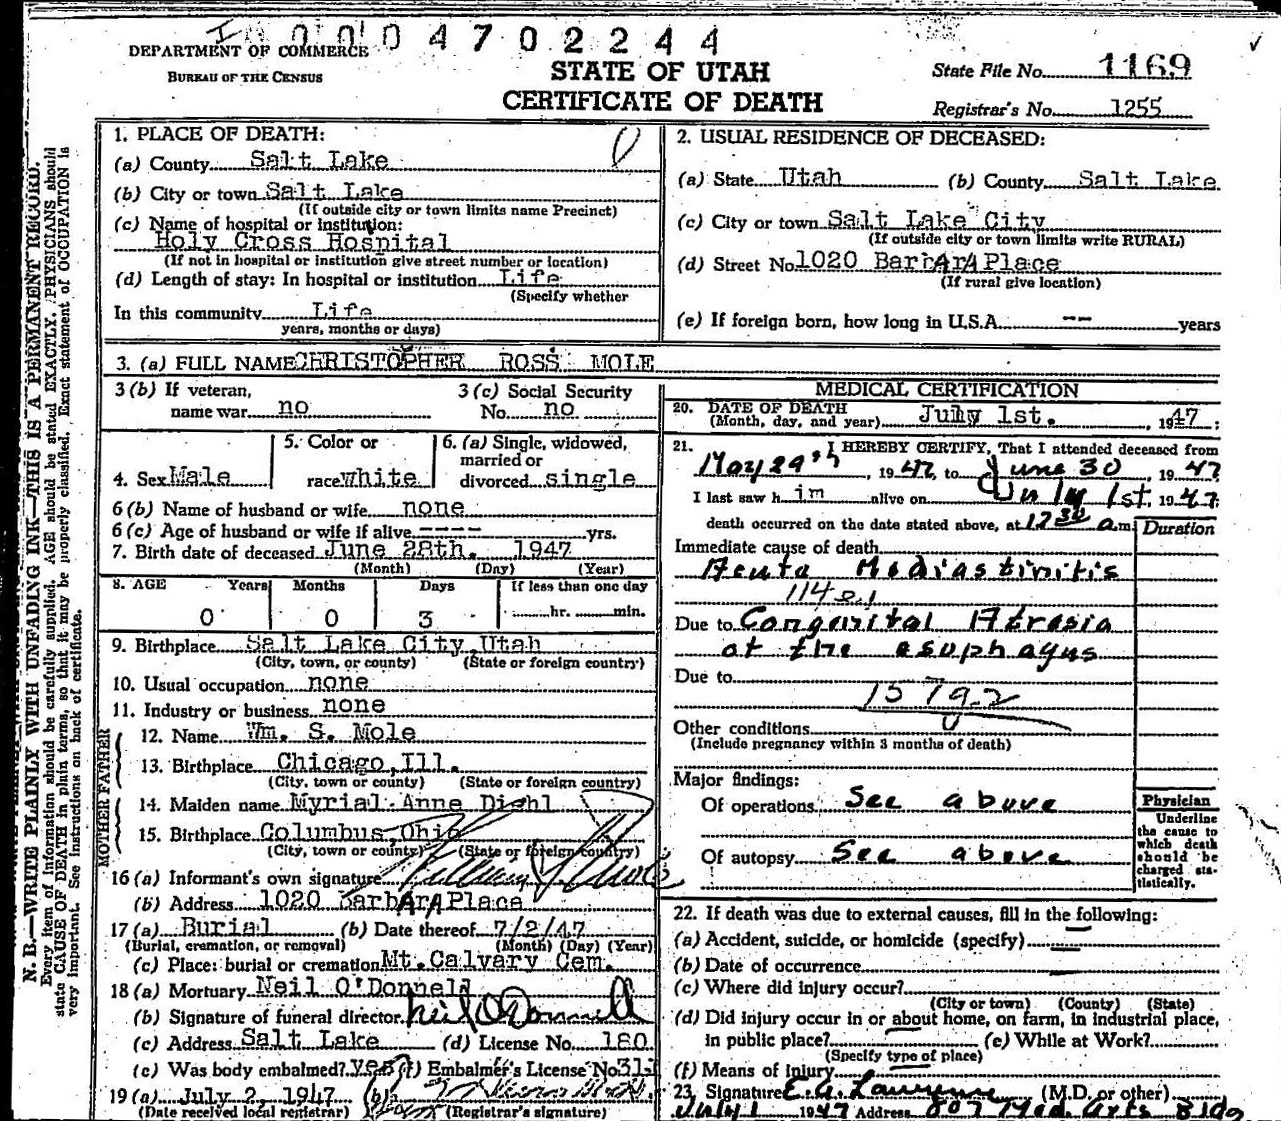 I 0 0 0 4 7 0 2 2 4 4 ✓
DEPARTMENT OF COMMERCE
BUREAU OF THE CENSUS
STATE OF UTAH
CERTIFICATE OF DEATH
State File No. 1169
Registrar's No. 1255
N. B.—WRITE PLAINLY WITH UNFADING INK—THIS IS A PERMANENT RECORD.
Every item of information should be carefully supplied. AGE should be stated EXACTLY. PHYSICIANS should
state CAUSE OF DEATH in plain terms, so that it may be properly classified. Exact statement of OCCUPATION is
very important. See instructions on back of certificate.
1. PLACE OF DEATH:
(a) County Salt Lake
(b) City or town Salt Lake
(If outside city or town limits name Precinct)
(c) Name of hospital or institution:
Holy Cross Hospital
(If not in hospital or institution give street number or location)
(d) Length of stay: In hospital or institution Life
(Specify whether
In this community Life
years, months or days)
2. USUAL RESIDENCE OF DECEASED:
(a) State Utah (b) County Salt Lake
(c) City or town Salt Lake City
(If outside city or town limits write RURAL)
(d) Street No. 1020 BarbARA Place
(If rural give location)
(e) If foreign born, how long in U.S.A. -- years
3. (a) FULL NAME CHRISTOPHER ROSS MOLE
3 (b) If veteran,
name war no
3 (c) Social Security
No. no
4. Sex Male
5. Color or
race white
6. (a) Single, widowed,
married or
divorced single
6 (b) Name of husband or wife none
6 (c) Age of husband or wife if alive ---- yrs.
7. Birth date of deceased June 28th. 1947
(Month) (Day) (Year)
8. AGE Years Months Days If less than one day
0 0 3 hr. min.
9. Birthplace Salt Lake City, Utah
(City, town, or county) (State or foreign country)
10. Usual occupation none
11. Industry or business none
FATHER
12. Name Wm. S. Mole
13. Birthplace Chicago, Ill.
(City, town or county) (State or foreign country)
MOTHER
14. Maiden name Myrial Anne Diehl
15. Birthplace Columbus, Ohio
(City, town or county) (State or foreign country)
16 (a) Informant's own signature
(b) Address 1020 BarbARA Place
17 (a) Burial (b) Date thereof 7/2/47
(Burial, cremation, or removal) (Month) (Day) (Year)
(c) Place: burial or cremation Mt. Calvary Cem.
18 (a) Mortuary Neil O'Donnell
(b) Signature of funeral director Neil O'Donnell
(c) Address Salt Lake (d) License No. 180
(e) Was body embalmed? yes (f) Embalmer's License No. 311
19 (a) July 2, 1947 (b)
(Date received local registrar) (Registrar's signature)
MEDICAL CERTIFICATION
20. DATE OF DEATH
(Month, day, and year) July 1st. , 1947
21. I HEREBY CERTIFY, That I attended deceased from
May 29th , 1947, to June 30 , 1947
I last saw him alive on July 1st, 1947
death occurred on the date stated above, at 12 30 a.m. Duration
Immediate cause of death
Acute Mediastinitis
Due to Congenital Atresia
of the esophagus
Due to
1579.2
Other conditions
(Include pregnancy within 3 months of death)
Major findings:
Of operations See above
Of autopsy See above
Physician
Underline
the cause to
which death
should be
charged sta-
tistically.
22. If death was due to external causes, fill in the following:
(a) Accident, suicide, or homicide (specify)
(b) Date of occurrence
(c) Where did injury occur?
(City or town) (County) (State)
(d) Did injury occur in or about home, on farm, in industrial place,
in public place? (e) While at Work?
(Specify type of place)
(f) Means of Injury
23. Signature E. A. Lawrence (M.D. or other)
July 1 1947 Address 807 Med. Arts Bldg